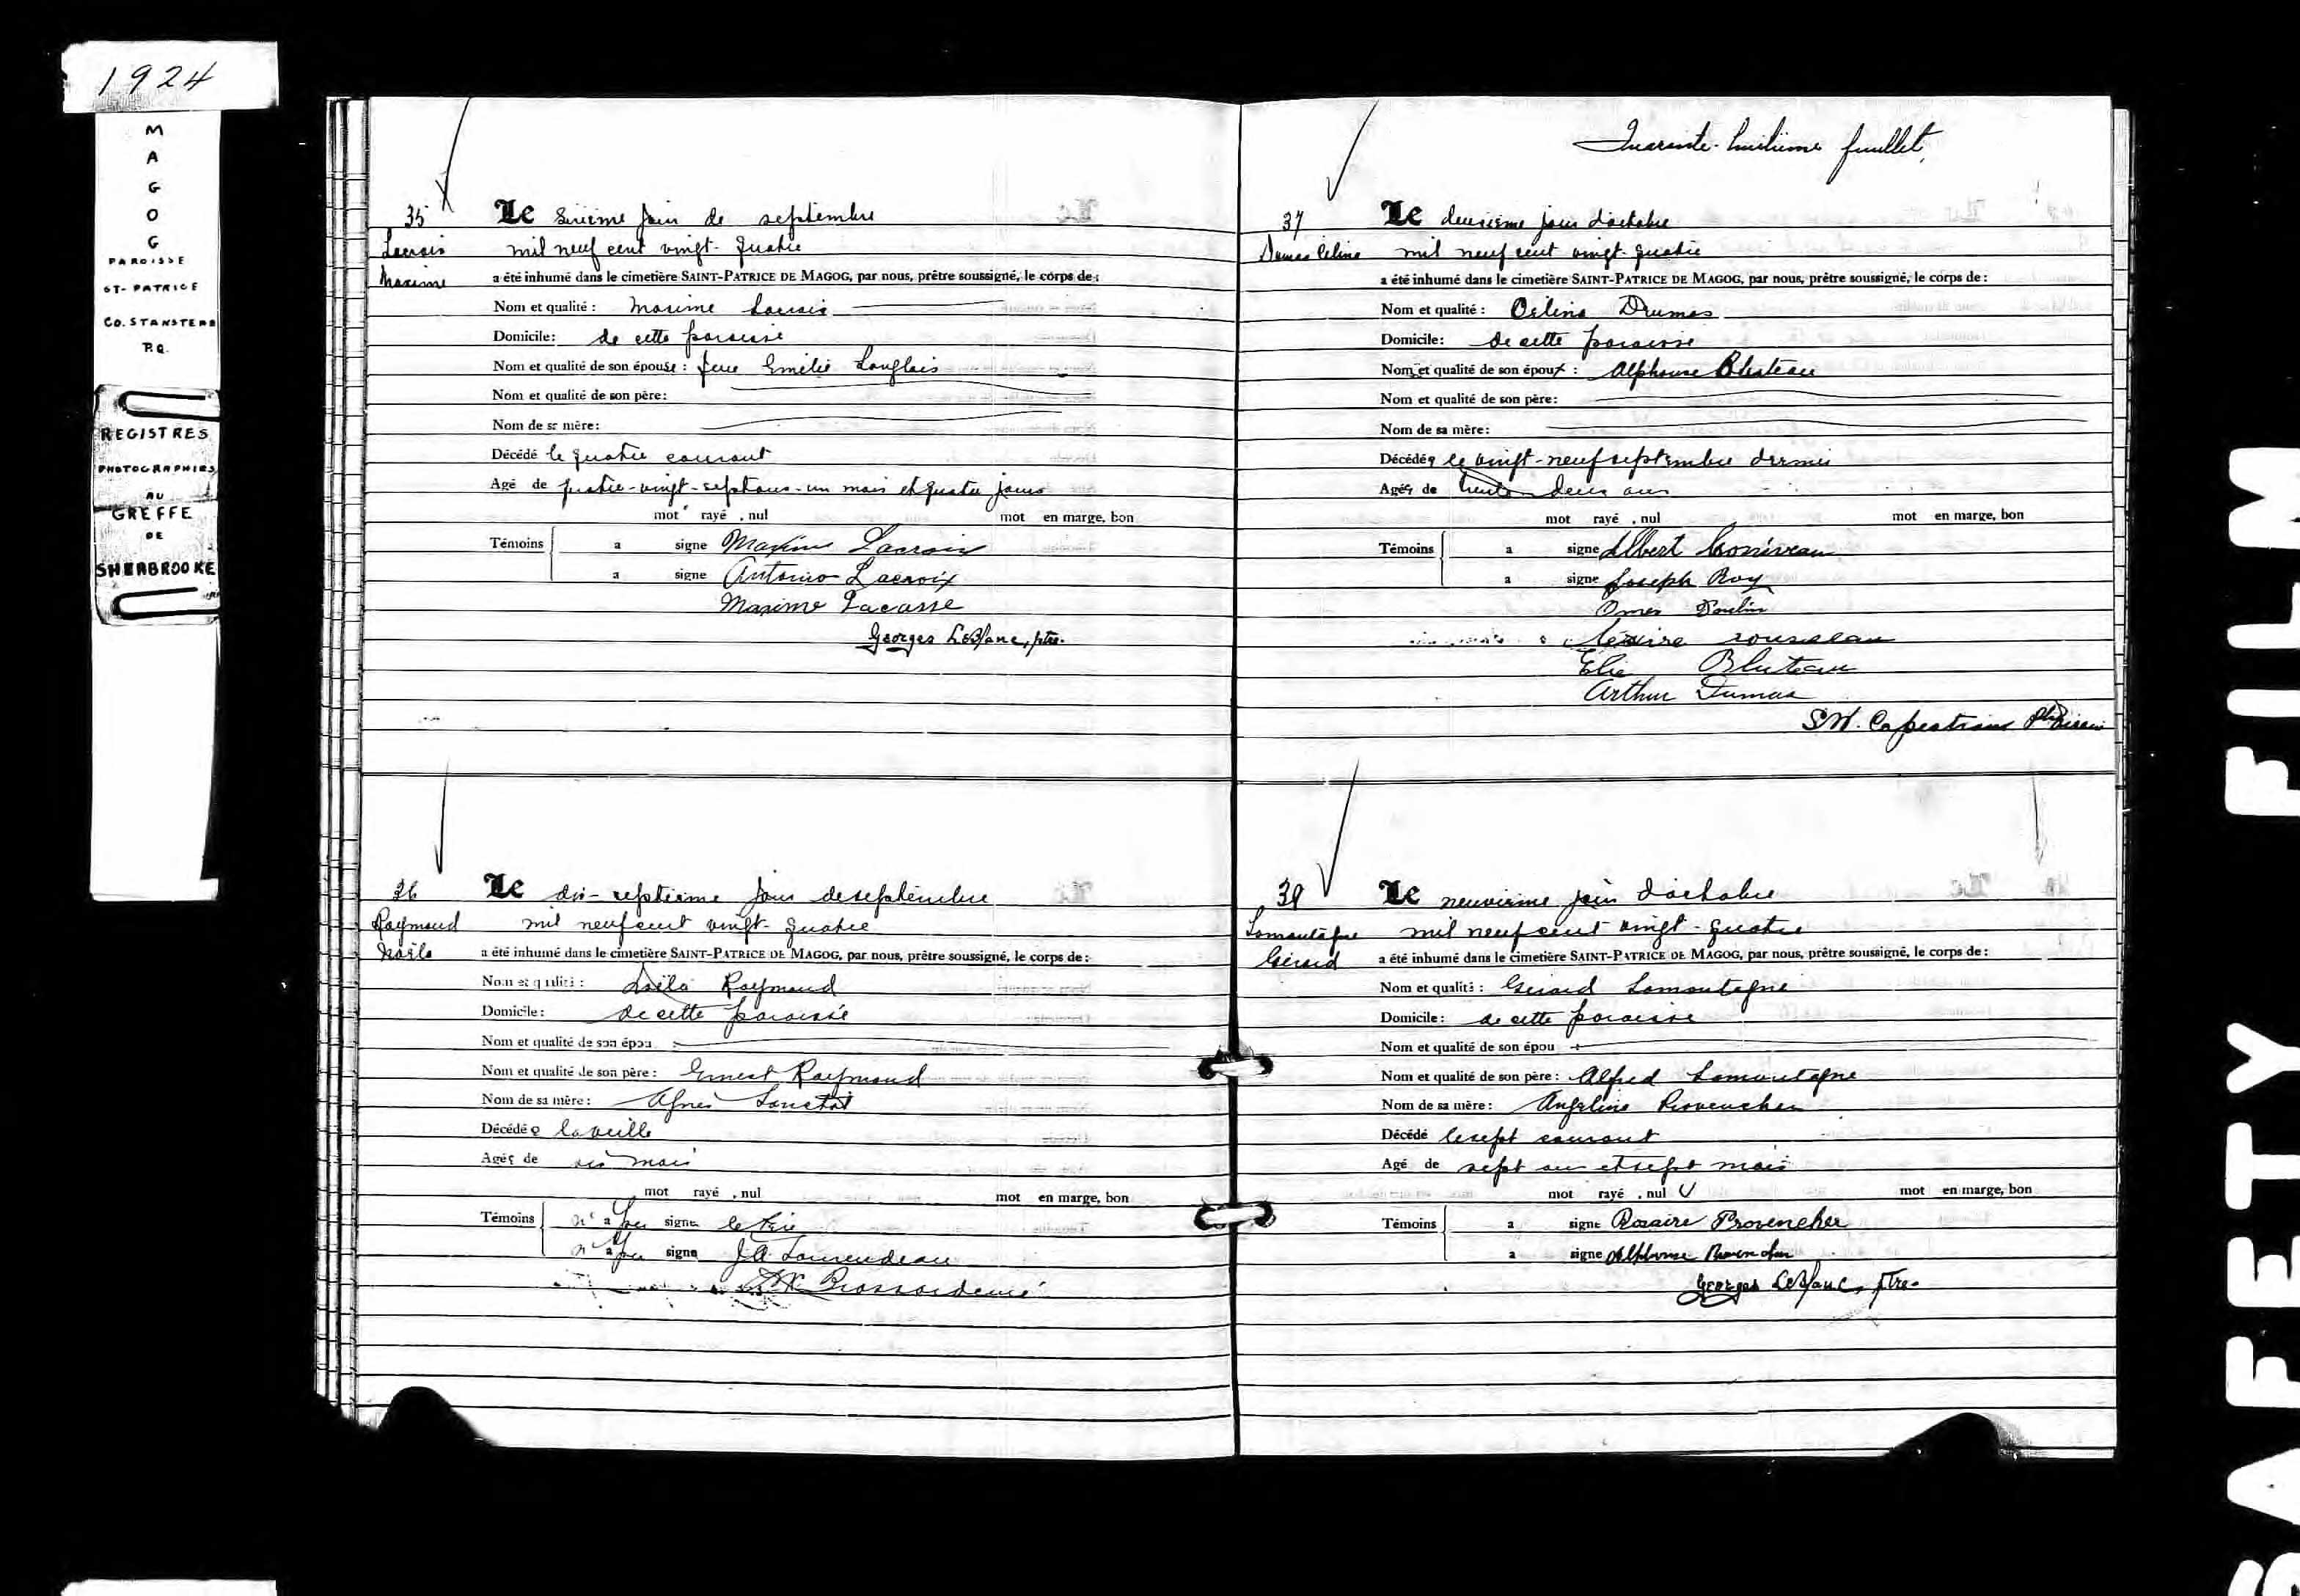 1924
MAGOG
PAROISSE
ST-PATRICE
CO. STANSTEAD
P.Q.
REGISTRES
PHOTOGRAPHIÉS
AU
GREFFE
DE
SHERBROOKE
35
Lacroix
Maxime
Le sixième jour de septembre
mil neuf cent vingt-quatre
a été inhumé dans le cimetière SAINT-PATRICE DE MAGOG, par nous, prêtre soussigné, le corps de :
Nom et qualité : Maxime Lacroix
Domicile : de cette paroisse
Nom et qualité de son épouse : feue Emélie Langlais
Nom et qualité de son père :
Nom de sa mère :
Décédé le quatre courant
Agé de quatre-vingt-sept ans - un mois et quatre jours
mot rayé , nul mot en marge, bon
Témoins a signé Maxime Lacroix
a signé Antonio Lacroix
Maxime Lacasse
Georges LeBlanc, ptre.
36
Raymond
Noëla
Le dix-septième jour de septembre
mil neuf cent vingt-quatre
a été inhumé dans le cimetière SAINT-PATRICE DE MAGOG, par nous, prêtre soussigné, le corps de :
Nom et qualité : Noëla Raymond
Domicile : de cette paroisse
Nom et qualité de son épou :
Nom et qualité de son père : Ernest Raymond
Nom de sa mère : Agnès
Décédée la veille
Agée de six mois
mot rayé , nul mot en marge, bon
Témoins n'a pu signe le Père
n'a pu signe J.A. Laurendeau
Brossard curé
Quarante-huitième feuillet
37
Dumas Célina
Le deuxième jour d'octobre
mil neuf cent vingt-quatre
a été inhumé dans le cimetière SAINT-PATRICE DE MAGOG, par nous, prêtre soussigné, le corps de :
Nom et qualité : Célina Dumas
Domicile : de cette paroisse
Nom et qualité de son époux : Alphonse Bluteau
Nom et qualité de son père :
Nom de sa mère :
Décédée le vingt-neuf septembre dernier
Agée de trente deux ans
mot rayé , nul mot en marge, bon
Témoins a signe Albert
a signe Joseph Roy
Omer Poulin
rousseau
Elie Bluteau
Arthur Dumas
38
Lamontagne
Gérard
Le neuvième jour d'octobre
mil neuf cent vingt-quatre
a été inhumé dans le cimetière SAINT-PATRICE DE MAGOG, par nous, prêtre soussigné, le corps de :
Nom et qualité : Gérard Lamontagne
Domicile : de cette paroisse
Nom et qualité de son épou
Nom et qualité de son père : Alfred Lamontagne
Nom de sa mère : Angélina Provencher
Décédé le sept courant
Agé de sept ans et sept mois
mot rayé , nul mot en marge, bon
Témoins a signe Rosaire Provencher
a signe Alphonse Provencher
Georges LeBlanc, ptre.
SAFETY FILM